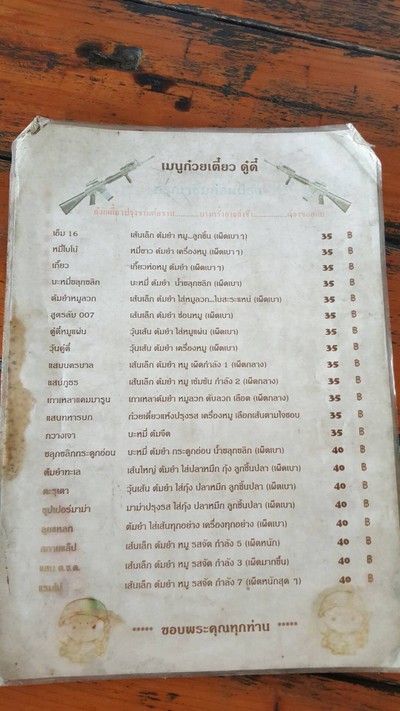 เมนูก๋วยเตี๋ยว ดู๋ดี๋
เอ็ม 16 เส้นเล็ก ต้มยำ หมู...ลูกชิ้น (เผ็ดเบา ๆ) 35 ฿
หมี่ใบไม้ หมี่ขาว ต้มยำ เครื่องหมู (เผ็ดเบา ๆ) 35 ฿
เกี้ยว เกี้ยวห่อหมู ต้มยำ (เผ็ดเบา ๆ) 35 ฿
บะหมี่ขลุกขลิก บะหมี่ ต้มยำ น้ำขลุกขลิก (เผ็ดเบา) 35 ฿
ต้มยำหมูลวก เส้นเล็ก ต้มยำ ใส่หมูลวก...ใบสะระแหน่ (เผ็ดเบา) 35 ฿
สูตรลับ 007 เส้นเล็ก ต้มยำ ซ่อนหมู (เผ็ดเบา) 35 ฿
ดู๋ดี๋หมูแผ่น วุ้นเส้น ต้มยำ ใส่หมูแผ่น (เผ็ดเบา) 35 ฿
วุ้นดู๋ดี๋ วุ้นเส้น ต้มยำ เครื่องหมู (เผ็ดเบา) 35 ฿
แสบนรบาล เส้นเล็ก ต้มยำ หมู เผ็ดกำลัง 1 (เผ็ดกลาง) 35 ฿
แสบภูธร เส้นเล็ก ต้มยำ หมู เข้มข้น กำลัง 2 (เผ็ดกลาง) 35 ฿
เกาเหลาแดนมารูน เกาเหลาต้มยำ หมูลวก ตับลวก เลือด (เผ็ดกลาง) 35 ฿
แสบทหารบก ก๋วยเตี๋ยวแห้งปรุงรส เครื่องหมู เลือกเส้นตามใจชอบ 35 ฿
กวางเจา บะหมี่ ต้มจืด 35 ฿
ขลุกขลิกกระดูกอ่อน บะหมี่ ต้มยำ กระดูกอ่อน น้ำขลุกขลิก (เผ็ดเบา) 40 ฿
ต้มยำทะเล เส้นใหญ่ ต้มยำ ใส่ปลาหมึก กุ้ง ลูกชิ้นปลา (เผ็ดเบา) 40 ฿
ตะรุเตา วุ้นเส้น ต้มยำ ใส่กุ้ง ปลาหมึก ลูกชิ้นปลา (เผ็ดเบา) 40 ฿
ซุปเปอร์มาม่า มาม่าปรุงรส ใส่กุ้ง ปลาหมึก ลูกชิ้นปลา (เผ็ดเบา) 40 ฿
ลุยแหลก ต้มยำ ใส่เส้นทุกอย่าง เครื่องทุกอย่าง (เผ็ดเบา) 40 ฿
สกายแล็ป เส้นเล็ก ต้มยำ หมู รสจัด กำลัง 5 (เผ็ดหนัก) 40 ฿
แสบ ต.ช.ด. เส้นเล็ก ต้มยำ หมู รสจัด กำลัง 3 (เผ็ดมากขึ้น) 40 ฿
แรมโบ้ เส้นเล็ก ต้มยำ หมู รสจัด กำลัง 7 (เผ็ดหนักสุด ๆ) 40 ฿
***** ขอบพระคุณทุกท่าน *****